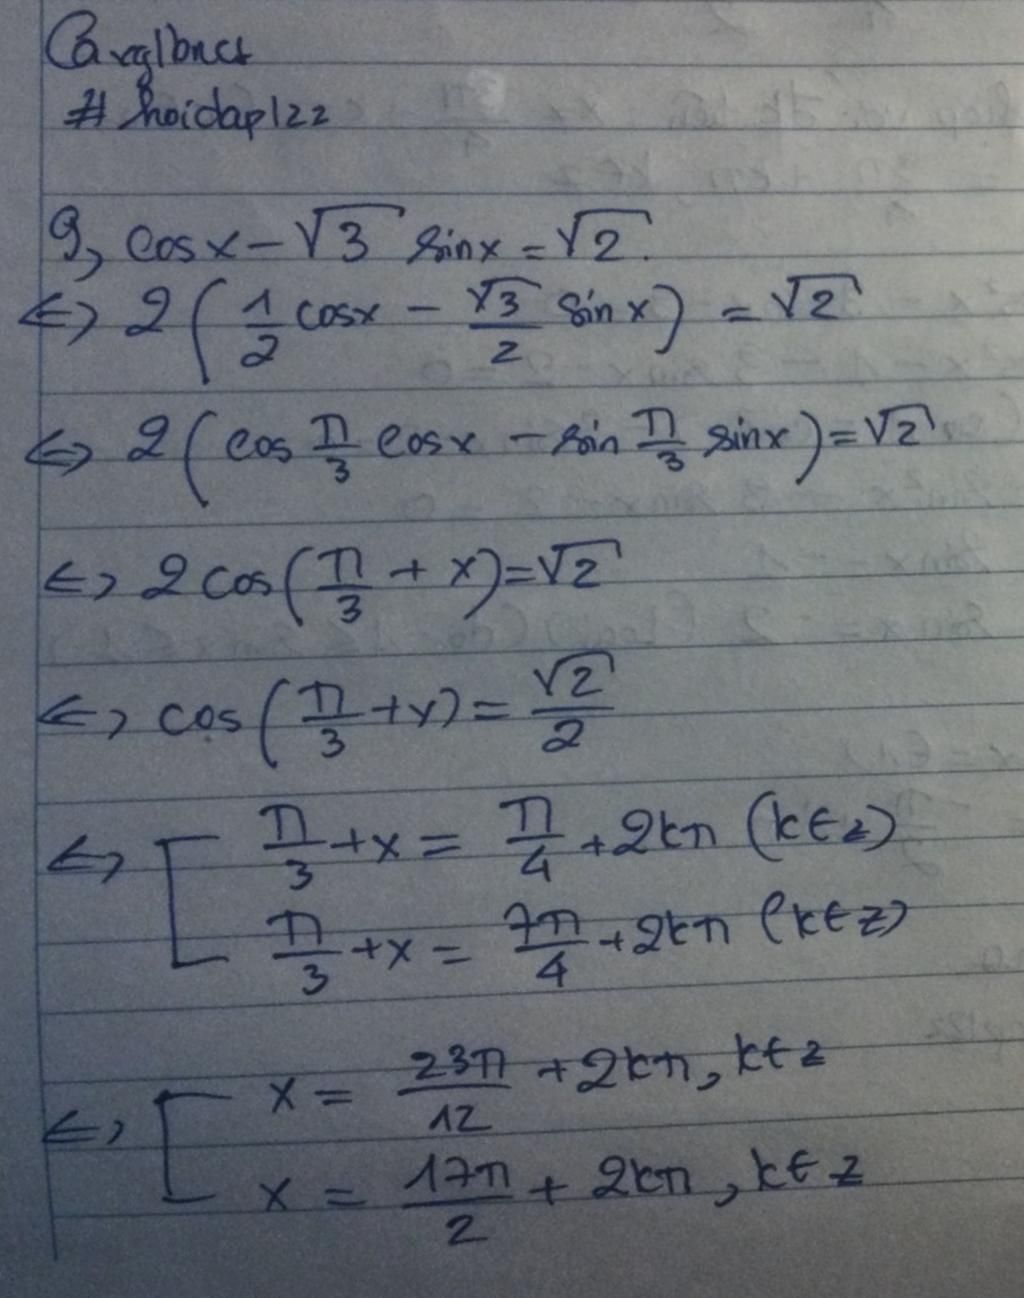 #hoidap122
9, cosx - √3 sinx = √2.
<=> 2(1/2 cosx - √3/2 sinx) = √2
<=> 2(cos π/3 cosx - sin π/3 sinx) = √2
<=> 2cos(π/3 + x) = √2
<=> cos(π/3 + x) = √2/2
<=> [ π/3 + x = π/4 + 2kπ (k∈z)
π/3 + x = 7π/4 + 2kπ (k∈z)
<=> [ x = 23π/12 + 2kπ, k∈z
x = 17π/2 + 2kπ, k∈z